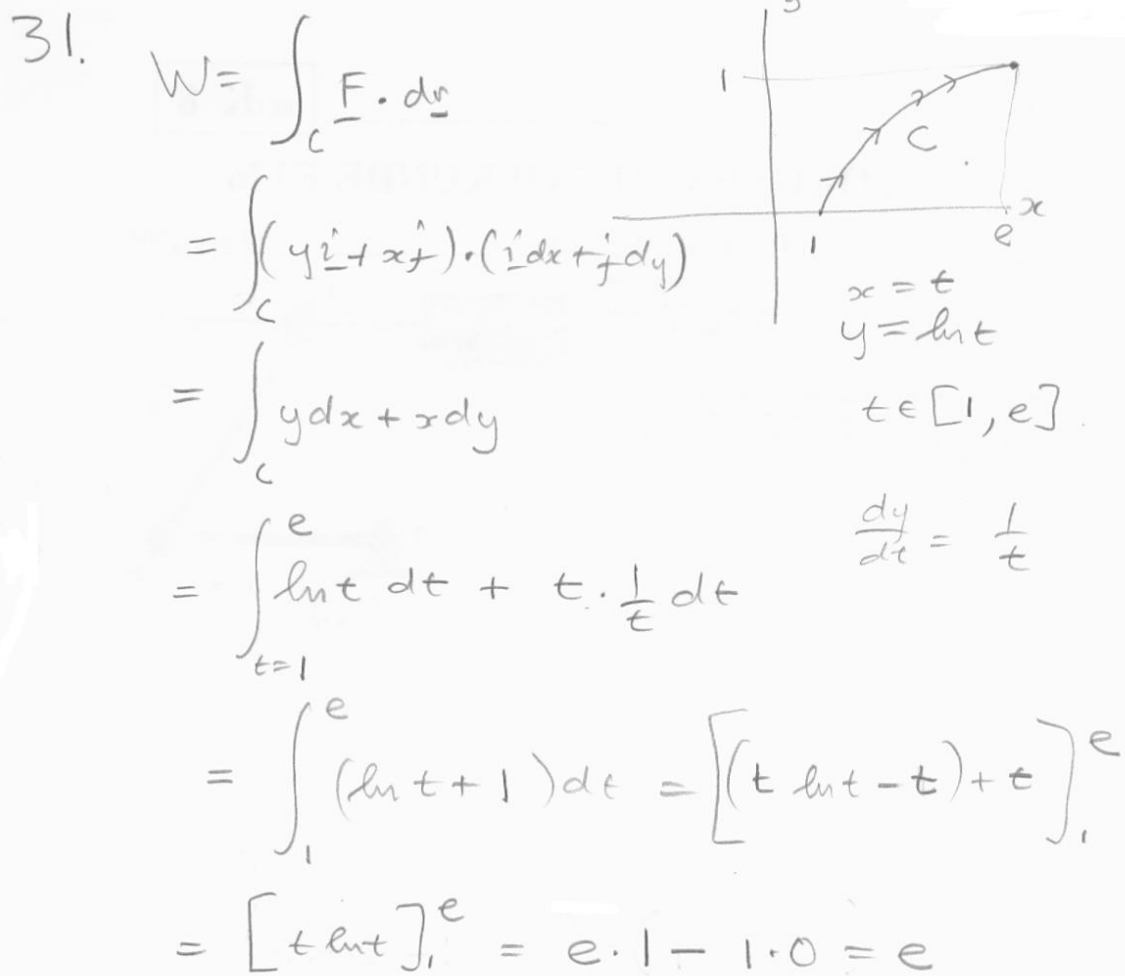 31.
W = ∫_C F · dr
= ∫_C (y i + x j) · (i dx + j dy)
= ∫_C y dx + x dy
= ∫_{t=1}^{e} ln t dt + t . 1/t dt
= ∫_1^e (ln t + 1) dt = [(t ln t - t) + t]_1^e
= [t ln t]_1^e = e · 1 - 1 · 0 = e
1
C
x
1
e
x = t
y = ln t
t ∈ [1, e]
dy/dt = 1/t